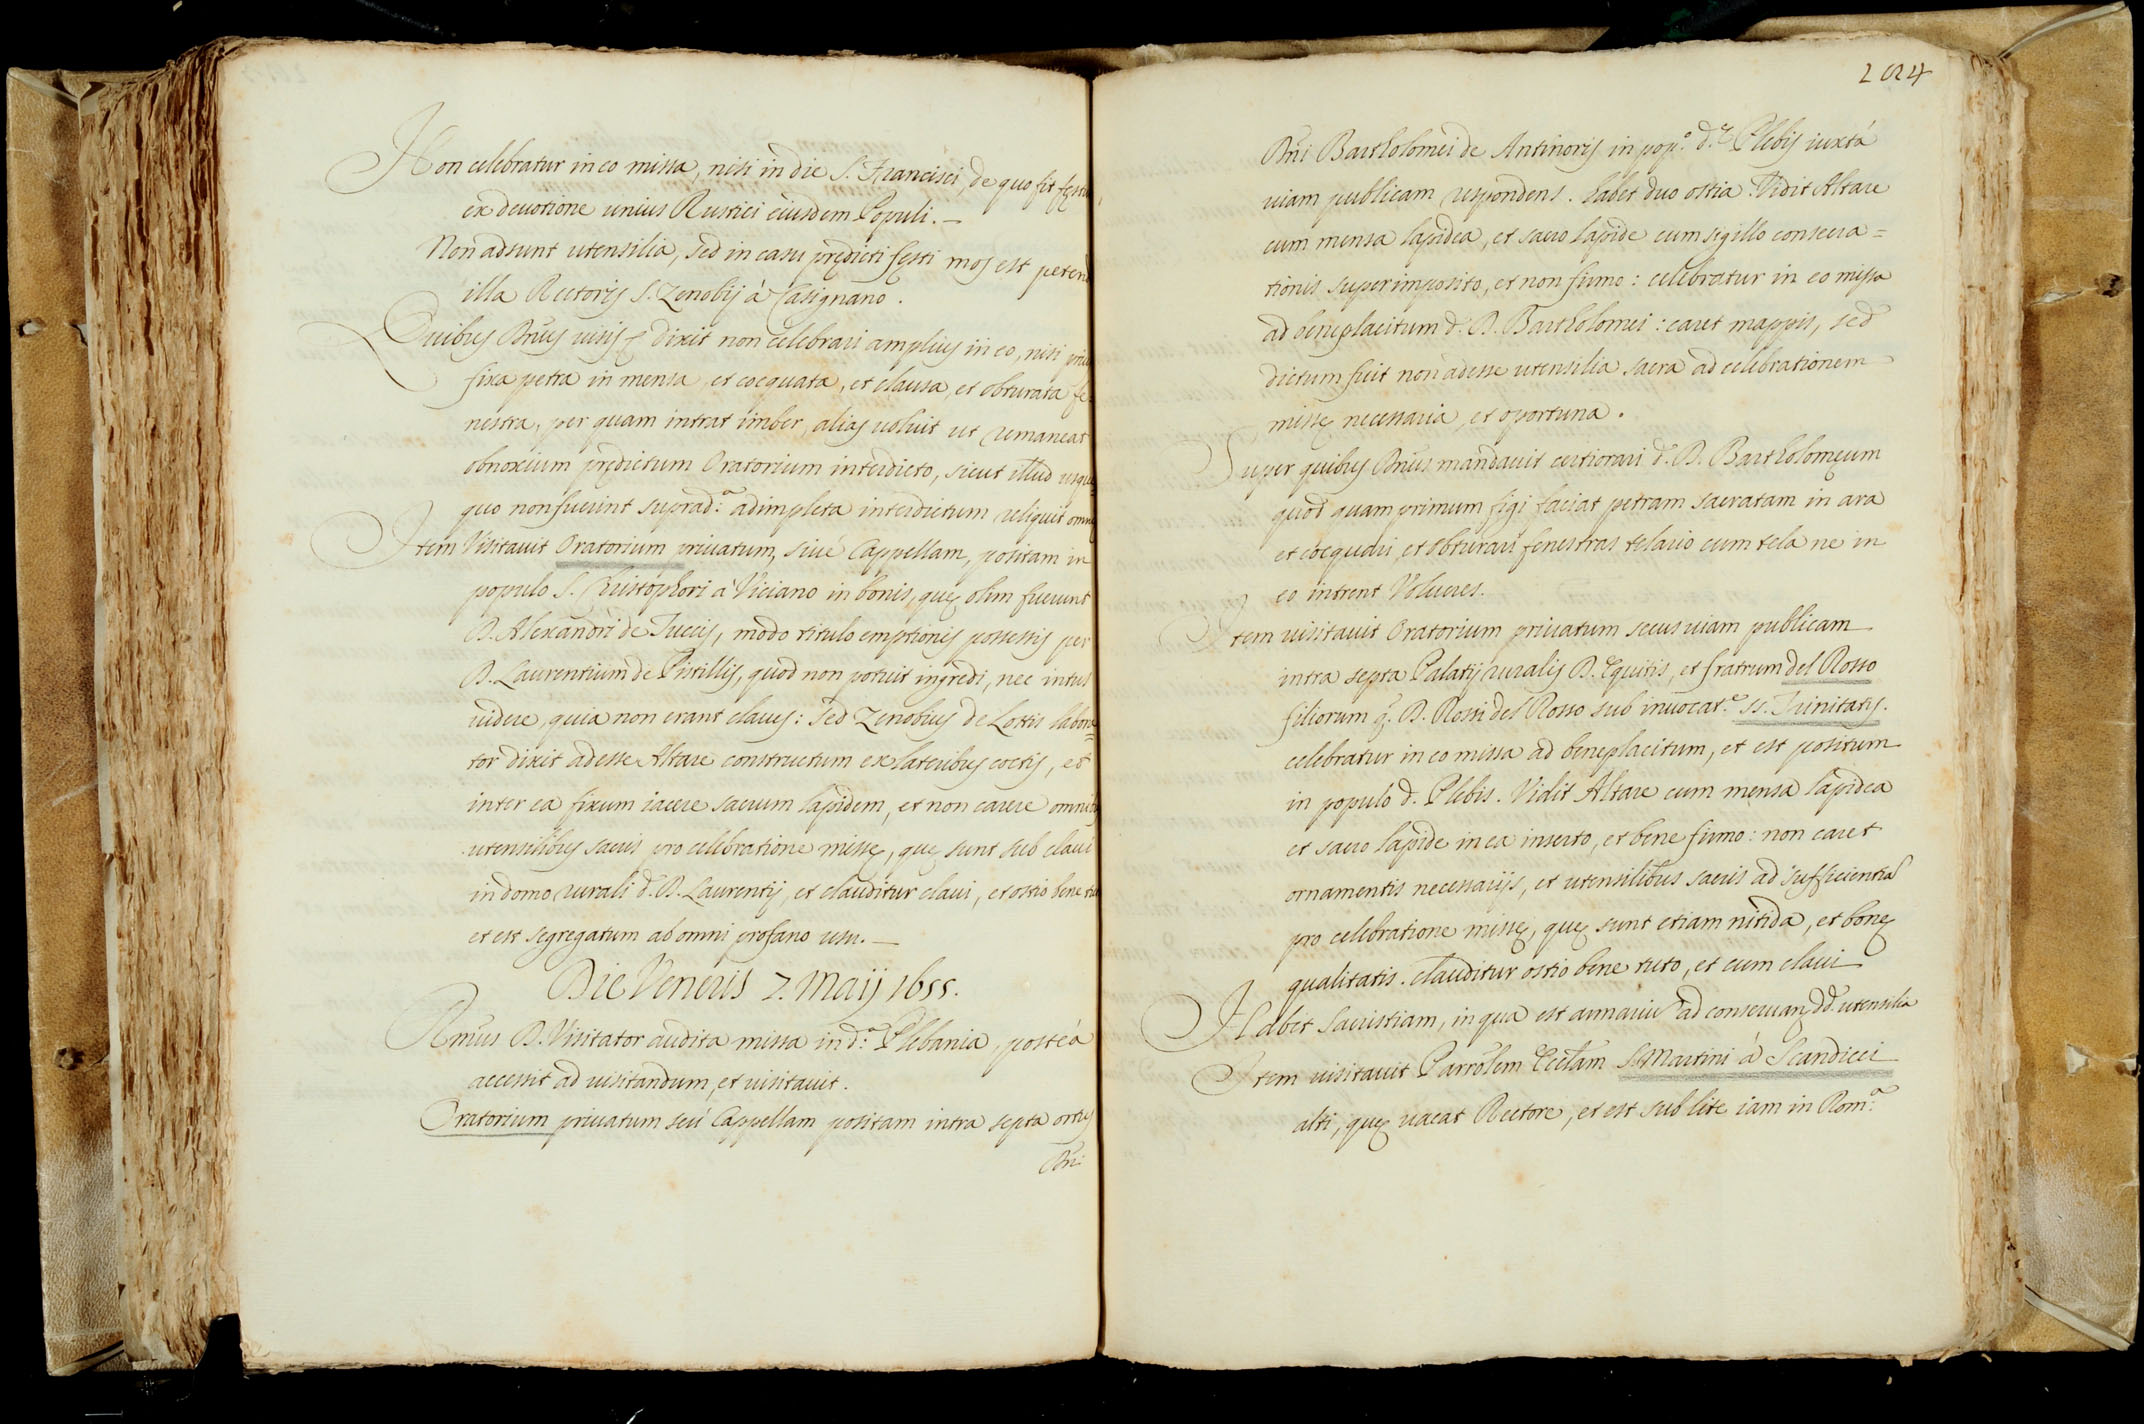 Non celebratur in eo missa, nisi in die S. Francisci, de quo fit festum
ex devotione unius Rustici eiusdem Populi. —
Non adsunt utensilia, sed in casu prędicti fęsti mos est petendi
illa Rectoris S. Zenobij à Casignano.
Quibus Dñus uisis dixit non celebrari amplius in eo, nisi prius
fixa petra in mensa, et coequata, et clausa, et obturata fe=
nestra, per quam intrat imber, alias uoluit ut remaneat
obnoxium prędictum Oratorium interdicto, sicut illud usque
quo non fuerint suprad.ª adimpleta interdictum reliquit omnino
Item Visitauit Oratorium priuatum, siué Cappellam, positam in
populo S. Christophori à Viciano in bonis, quę olim fuerunt
D. Alexandri de Tuccis, modo titulo emptionis possessis per
D. Laurentium de Pitillis, quod non potuit ingredi, nec intus
uidere, quia non erant claues: sed Zenobius de Lottis labora=
tor dixit adesse Altare constructum ex lateribus coctis, et
inter ea fixum iacere sacrum lapidem, et non carere omnibus
utensilibus sacris pro celebratione missę, quę sunt sub claui
in domo rurali d. D. Laurentij, et clauditur claui, et ostio bene tuto
et est segregatum ab omni profano usu. —
Die Veneris 7. Maij 1655.
Rmus D. Visitator audita missa in d.ª Plebania, posteà
accessit ad uisitandum, et uisitauit.
Oratorium priuatum seù Cappellam positam intra septa ortus
Dñi
204
Dñi Bartholomei de Antinoris in pop.º d.ę Plebis iuxtà
uiam publicam respondens. habet duo ostia. Vidit Altare
cum mensa lapidea, et sacro lapide cum sigillo consecra=
tionis superimposito, et non firmo: celebratur in eo missa
ad beneplacitum d. D. Bartholomei: caret mappis, sed
dictum fuit non adesse utensilia sacra ad celebrationem
missę necessaria, et oportuna.
Super quibus Dñus mandauit certiorari d. D. Bartholomęum
quod quamprimum figi faciat petram sacratam in ara
et coequari, et obturari fenestras telario cum tela ne in
eo intrent Volucres.
Item uisitauit Oratorium priuatum secus uiam publicam
intra septa Palatij ruralis D. Equitis, et fratrum del Rosso
filiorum q. D. Rossi del Rosso sub inuocat.e SS. Trinitatis.
celebratur in eo missa ad beneplacitum, et est positum
in populo d. Plebis. Vidit Altare cum mensa lapidea
et sacro lapide in ea inserto, et bene firmo: non caret
ornamentis necessarijs, et utensilibus sacris ad sufficientiã
pro celebratione missę, quę sunt etiam nitida, et bonę
qualitatis. clauditur ostio bene tuto, et cum claui
Habet Sacristiam, in qua est armariũ ad conseruanď dď. utensilia
Item uisitauit Parrõlem Ecclam S. Martini à Scandicci
alti, quę uacat Rectore, et est sub lite iam in Rom.ª